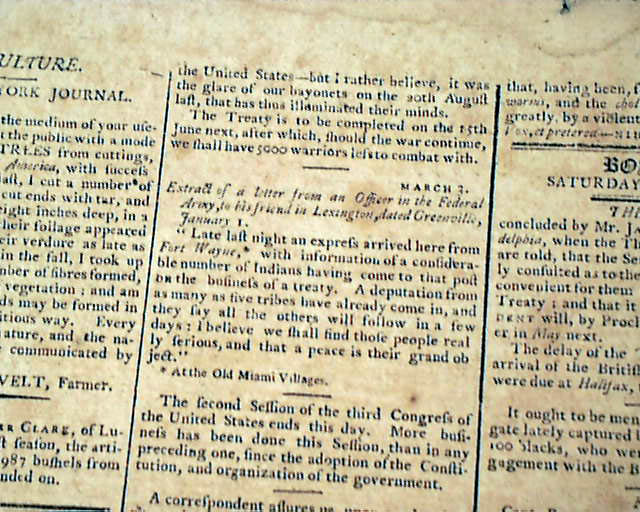 ULTURE.
YORK JOURNAL.
the medium of your use-
t the public with a mode
TREES from cuttings,
America, with success
last, I cut a number of
cut ends with tar, and
eight inches deep, in a
heir foliage appeared
eir verdure as late as
in the fall, I took up
mber of fibres formed,
vegetation : and am
ds may be formed in
itious way. Every
ature, and the na-
e communicated by
VELT, Farmer.
ER CLARE, of Lu-
st season, the arti-
987 bushels from
nded on.
the United States—but I rather believe, it was
the glare of our bayonets on the 20th August
last, that has thus illuminated their minds.
The Treaty is to be completed on the 15th
June next, after which, should the war continue,
we shall have 5000 warriors less to combat with.
MARCH 3.
Extract of a letter from an Officer in the Federal
Army, to his friend in Lexington, dated Greenville,
January 1.
" Late last night an express arrived here from
Fort Wayne,* with information of a considera-
ble number of Indians having come to that post
on the business of a treaty. A deputation from
as many as five tribes have already come in, and
they say all the others will follow in a few
days : I believe we shall find those people real
ly serious, and that a peace is their grand ob
ject."
* At the Old Miami Villages.
The second Session of the third Congress of
the United States ends this day. More busi-
ness has been done this Session, than in any
preceding one, since the adoption of the Consti-
tution, and organization of the government.
A correspondent assures us,
that, having been,
worms, and the
greatly, by a violent
BO
SATURDA
TH
concluded by Mr. JA
delphia, when the
are told, that the Se
ly consulted as to the
convenient for them
Treaty ; and that it
DENT will, by Procl
er in May next.
The delay of the
arrival of the British
were due at Halifax,
It ought to be men
gate lately captured
100 blacks, who wer
gagement with the B